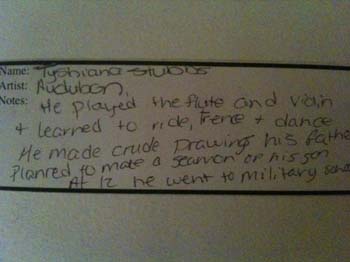 Name: Tyshiana Stubbs
Artist: Audubon,
Notes: He played the flute and violin
+ learned to ride, Fence + dance
He made crude Drawing his fathe
Planned to mate a seamon of his son
At 12 he went to military